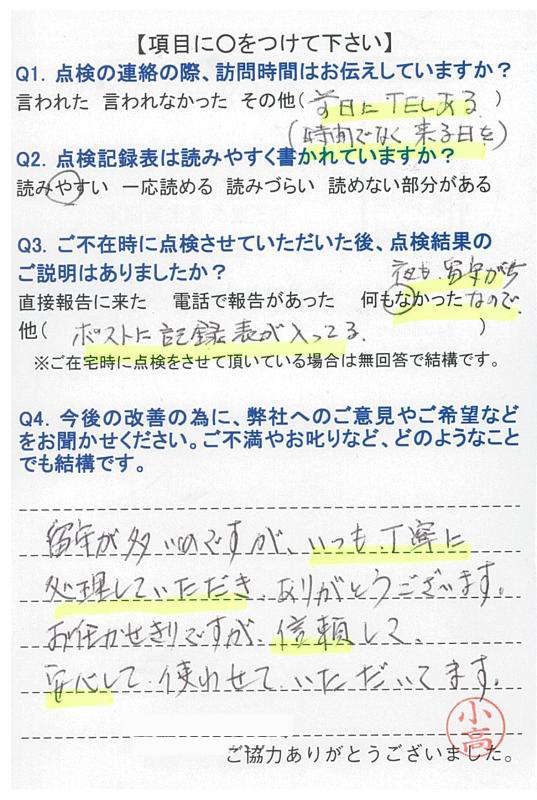 【項目に〇をつけて下さい】
Q1. 点検の連絡の際、訪問時間はお伝えしていますか?
言われた 言われなかった その他( 前日にTELしある )
(時間でなく 来る日を)
Q2. 点検記録表は読みやすく書かれていますか?
読みやすい 一応読める 読みづらい 読めない部分がある
Q3. ご不在時に点検させていただいた後、点検結果の
ご説明はありましたか?
夜も、留守がち
直接報告に来た 電話で報告があった 何もなかった なので、
他( ポストに記録表が入ってる。 )
※ご在宅時に点検をさせて頂いている場合は無回答で結構です。
Q4. 今後の改善の為に、弊社へのご意見やご希望など
をお聞かせください。ご不満やお叱りなど、どのようなこと
でも結構です。
留守が多いのですが、いつも、丁寧に
処理していただき、ありがとうございます。
お任かせきりですが、信頼して、
安心して、使わせて、いただいてます。
小高
ご協力ありがとうございました。